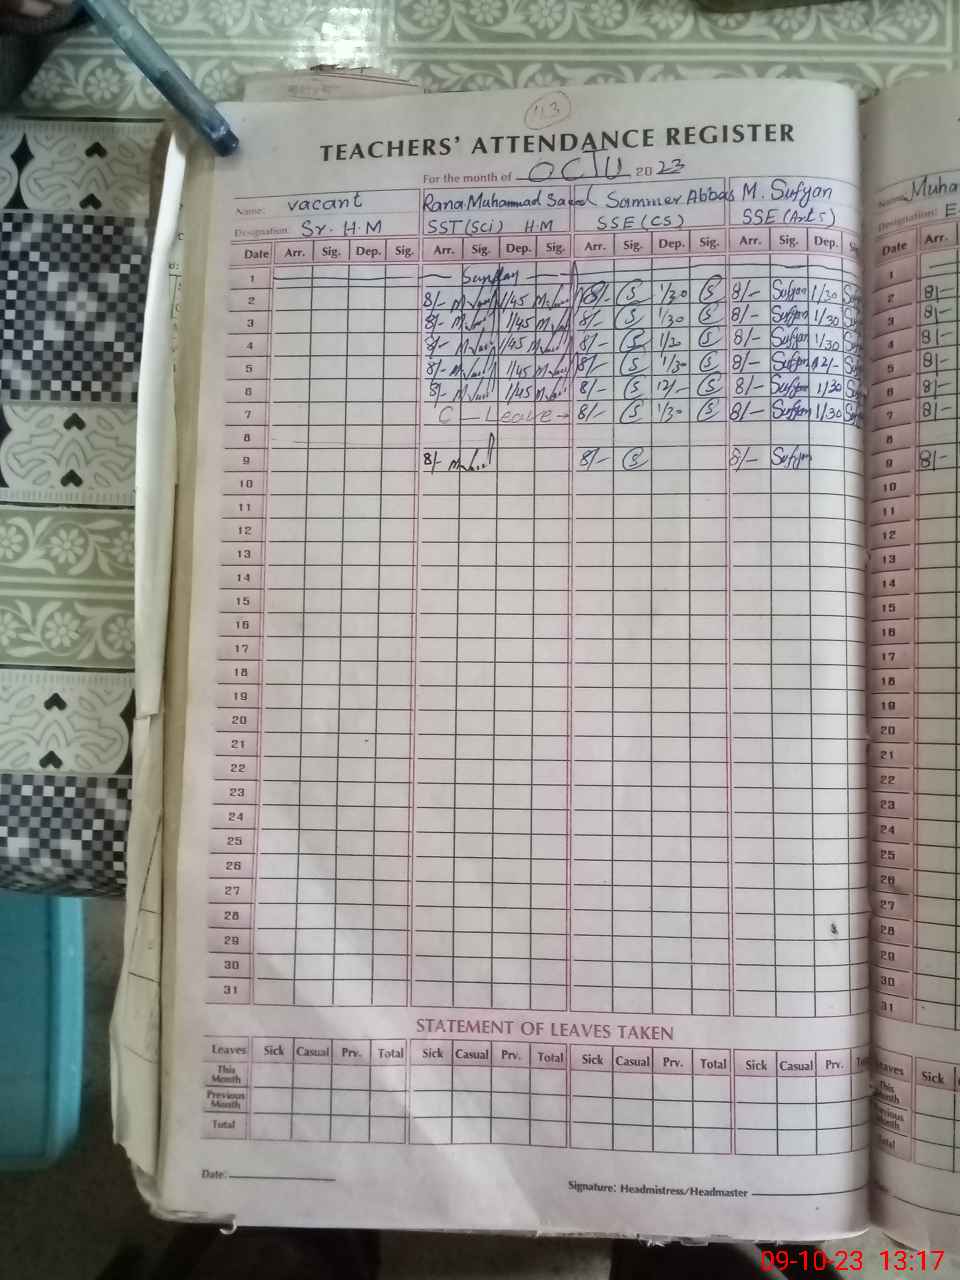 43
TEACHERS' ATTENDANCE REGISTER
For the month of OCTU 2023
Name: vacant Rana Muhammad Saeed Sammer Abbas M. Sufyan
Designation: Sr. H.M SST (Sci) H.M SSE (CS) SSE (Arts)
Date Arr. Sig. Dep. Sig. Arr. Sig. Dep. Sig. Arr. Sig. Dep. Sig. Arr. Sig. Dep. Sig.
1 Sunday
2 8/- 1/45 8/- S 1/30 S 8/- Sufyan 1/30
3 8/- 1/45 8/- S 1/30 S 8/- Sufyan 1/30
4 8/- 1/45 8/- S 1/30 S 8/- Sufyan 1/30
5 8/- 1/45 8/- S 1/30 S 8/- Sufyan 12/-
6 8/- 1/45 8/- S 12/- S 8/- Sufyan 1/30
7 C - Leave 8/- S 1/30 S 8/- Sufyan 1/30
8
9 8/- 8/- S 8/- Sufyan
10
11
12
13
14
15
16
17
18
19
20
21
22
23
24
25
26
27
28
29
30
31
STATEMENT OF LEAVES TAKEN
Leaves Sick Casual Prv. Total Sick Casual Prv. Total Sick Casual Prv. Total Sick Casual Prv.
This Month
Previous Month
Total
Date:
Signature: Headmistress/Headmaster
Muha
Designation: E
Date Arr.
1
2 8/-
3 8/-
4 8/-
5 8/-
6 8/-
7 8/-
8
9 8/-
10
11
12
13
14
15
16
17
18
19
20
21
22
23
24
25
26
27
28
29
30
31
Sick
09-10-23 13:17